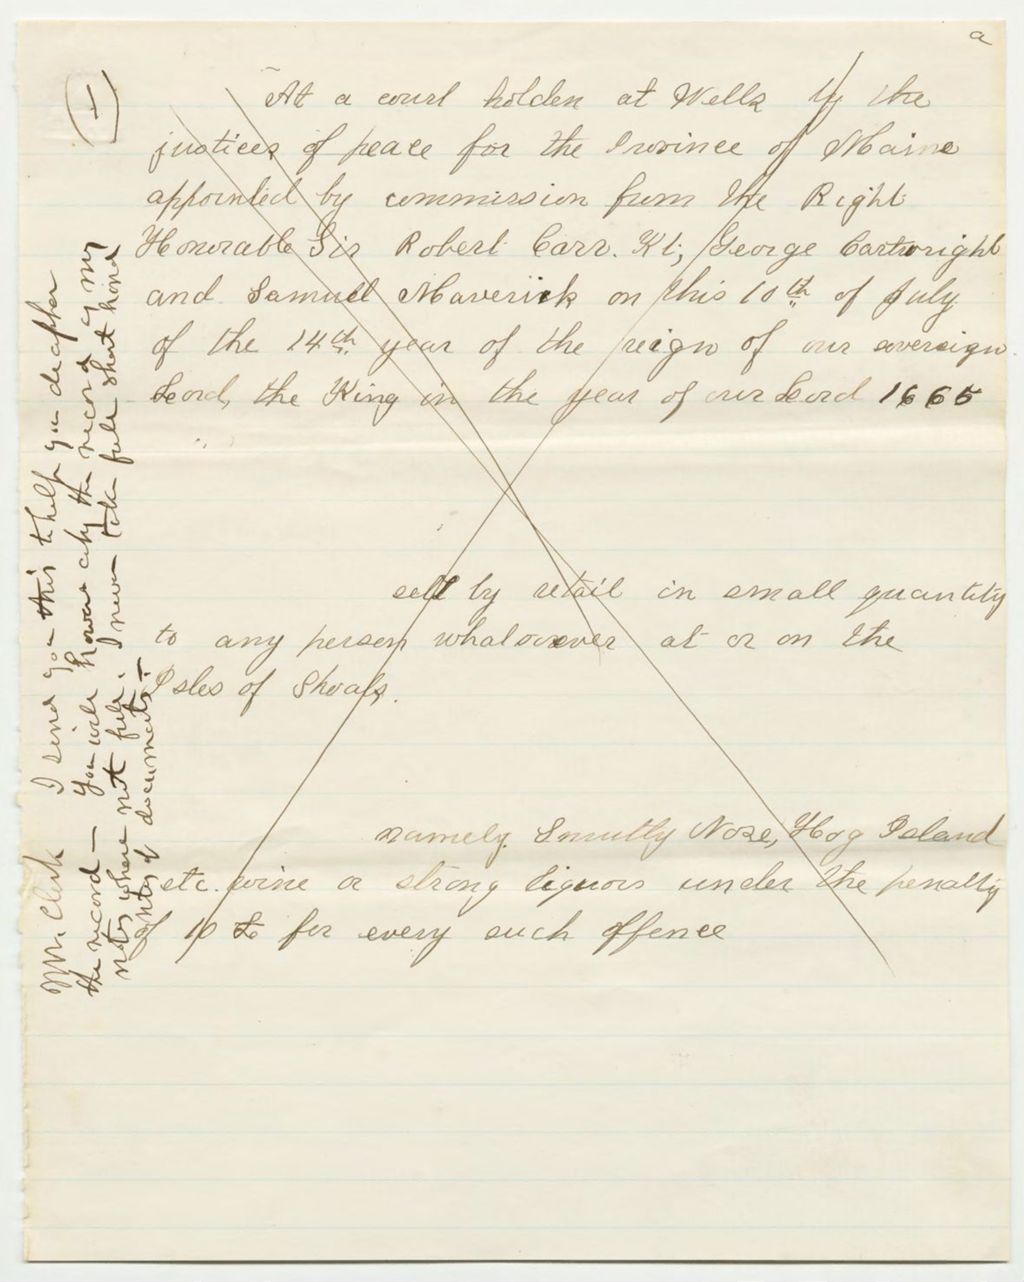 a
1
At a court holden at Wells by the
justices of peace for the Province of Maine
appointed by commission from the Right
Honorable Sir Robert Carr. Kt; George Cartwright
and Samuel Maverick on this 10th of July
of the 14th year of the reign of our sovereign
Lord, the King in the year of our Lord 1665
sell by retail in small quantity
to any person whatsoever at or on the
Isles of Shoals.
namely. Smutty Nose, Hog Island
etc. wine or strong liquors under the penalty
of 10 £ for every such offence
Mr. Clerk I send you this to help you decipher
the record — you will however copy the record of my
notes where not full. I never take full short hand
notes of documents. —